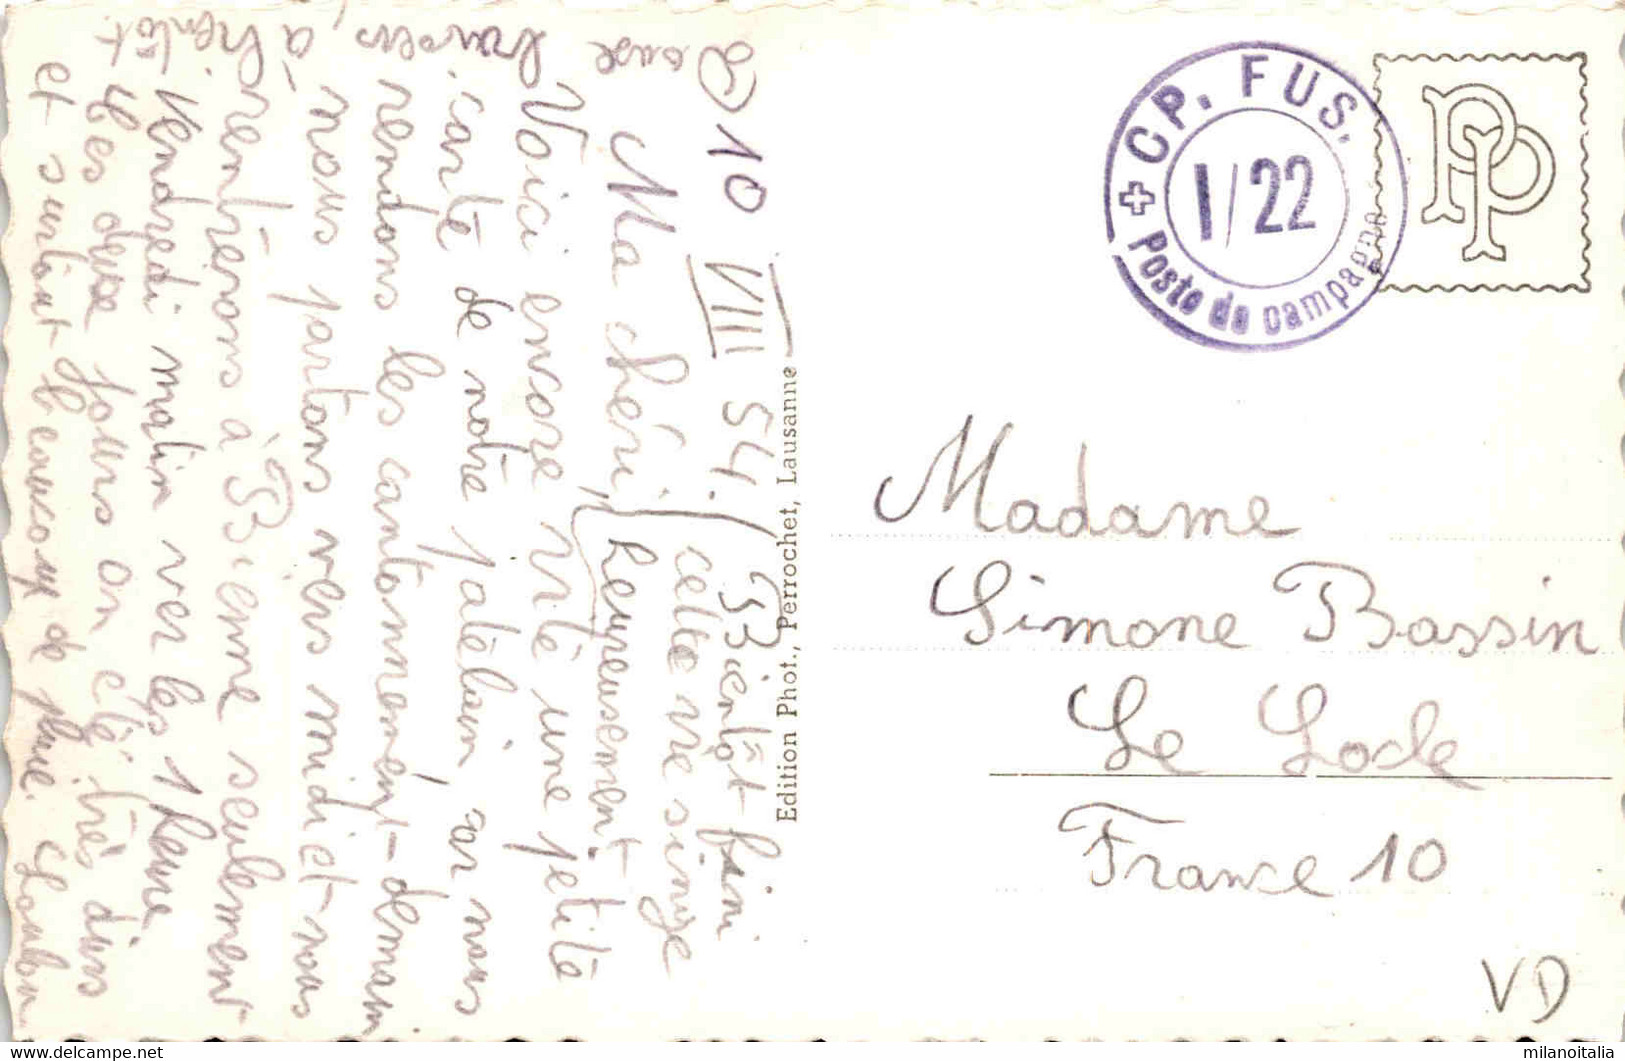 10 VIII 54. Bientôt fini
cette vie singe
Ma chérie, heureusement
Voici encore vite une petite
carte de notre patelin, car nous
rendons les cantonnements demain
nous partons vers midi et nous
rentrerons à Bienne seulement
Vendredi matin ver les 1 heure
Les deux jours on été très durs
et surtout beaucoup de pluie.
à bientôt
Edition Phot., Perrochet, Lausanne
CP. FUS.
I/22
Poste de campagne
PP
Madame
Simone Bassin
Le Locle
France 10
VD
milanoitalia